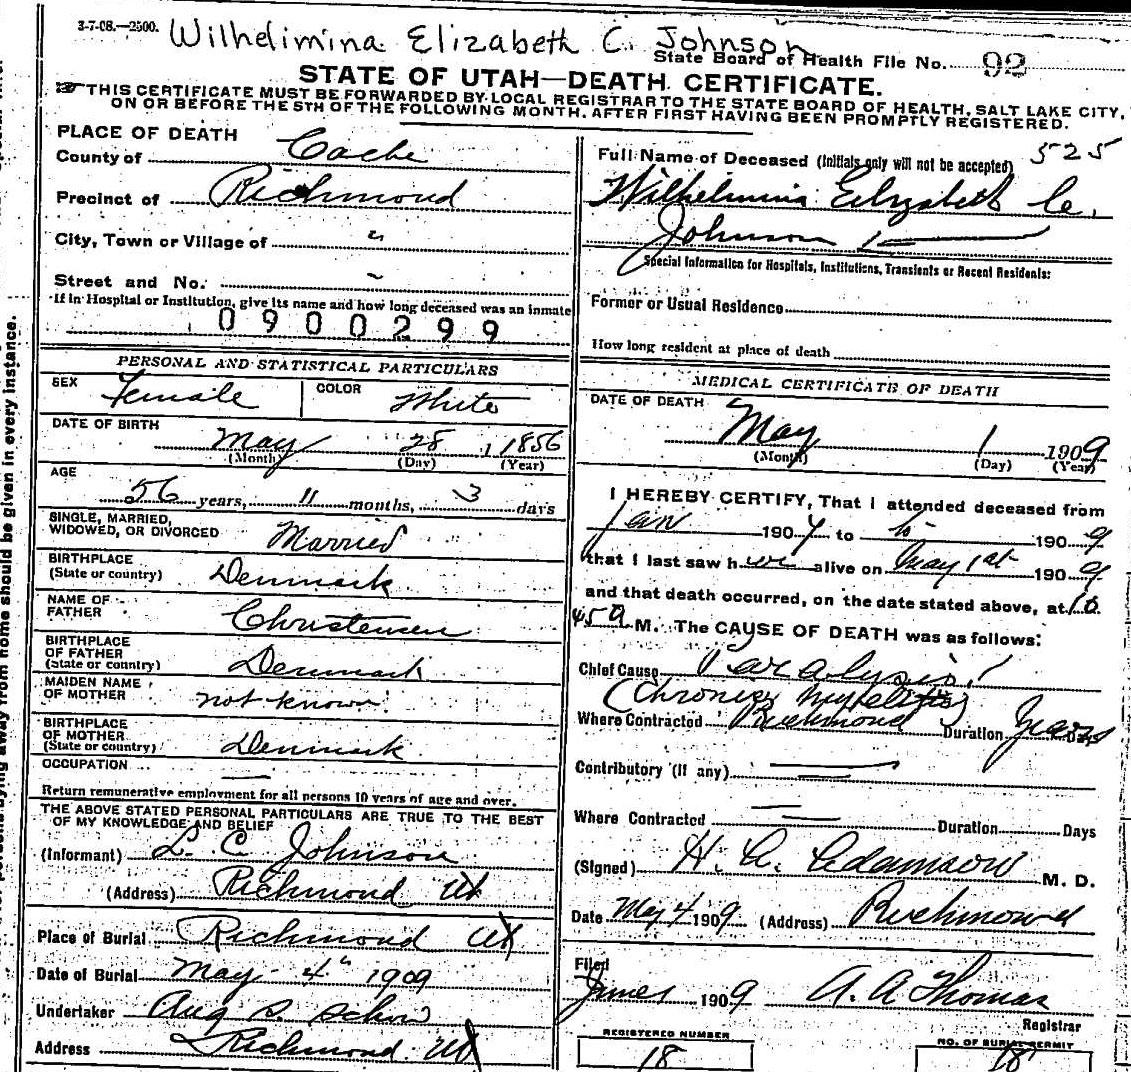 3-7-08.—2500. Wilhelimina Elizabeth C. Johnson
State Board of Health File No. 92
STATE OF UTAH—DEATH CERTIFICATE.
THIS CERTIFICATE MUST BE FORWARDED BY LOCAL REGISTRAR TO THE STATE BOARD OF HEALTH, SALT LAKE CITY,
ON OR BEFORE THE 5TH OF THE FOLLOWING MONTH, AFTER FIRST HAVING BEEN PROMPTLY REGISTERED.
PLACE OF DEATH
County of Cache
Precinct of Richmond
City, Town or Village of "
Street and No. ~
If in Hospital or Institution, give its name and how long deceased was an inmate
0900299
PERSONAL AND STATISTICAL PARTICULARS
SEX Female COLOR White
DATE OF BIRTH
May 28 1 1856
(Month) (Day) (Year)
AGE
56 years, 11 months, 3 days
SINGLE, MARRIED,
WIDOWED, OR DIVORCED Married
BIRTHPLACE
(State or country) Denmark
NAME OF
FATHER Christensen
BIRTHPLACE
OF FATHER
(State or country) Denmark
MAIDEN NAME
OF MOTHER not known
BIRTHPLACE
OF MOTHER
(State or country) Denmark
OCCUPATION —
Return remunerative employment for all persons 10 years of age and over.
THE ABOVE STATED PERSONAL PARTICULARS ARE TRUE TO THE BEST
OF MY KNOWLEDGE AND BELIEF
(Informant) L. C. Johnson
(Address) Richmond Ut
Place of Burial Richmond Ut
Date of Burial May 4th 1909
Undertaker Aug S. Schow
Address Richmond Ut
Full Name of Deceased (Initials only will not be accepted) 525
Wilhelmina Elizabeth C.
Johnson
Special Information for Hospitals, Institutions, Transients or Recent Residents:
Former or Usual Residence
How long resident at place of death
MEDICAL CERTIFICATE OF DEATH
DATE OF DEATH
May 1 1909
(Month) (Day) (Year)
I HEREBY CERTIFY, That I attended deceased from
Jan 190 to to 1909
that I last saw her alive on May 1st 1909
and that death occurred, on the date stated above, at 10
45 a M. The CAUSE OF DEATH was as follows:
Chief Cause Paralysis
(Chronic Myelitis)
Where Contracted Richmond Duration Years Days
Contributory (if any) —
Where Contracted — Duration Days
(Signed) H. C. Adamson M. D.
Date May 4 1909 (Address) Richmond
Filed
June 1909 A. A Thomas
Registrar
REGISTERED NUMBER
18
NO. OF BURIAL PERMIT
18